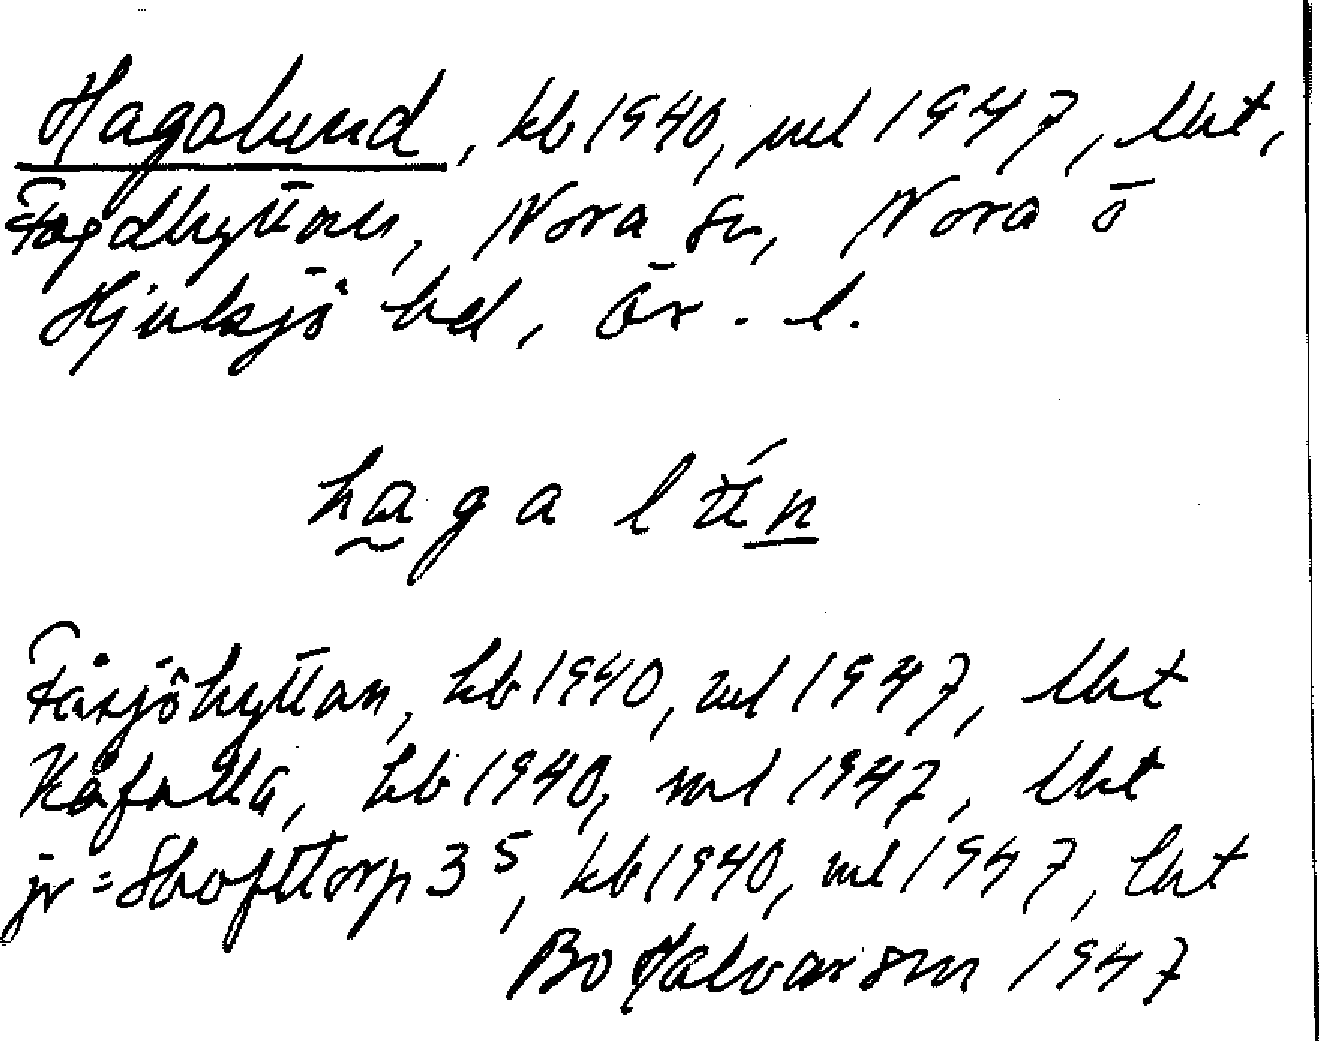 Hagalund, kb 1940, ml 1947, lht,
Fogdhyttan, Nora sn, Nora o
Hjulsjö bd, Ör. l.
hagalún
Fåsjöhyttan, kb 1940, ml 1947, lht
Kåfalla, kb 1940, ml 1947, lht
jr = Skofttorp 3⁵, kb 1940, ml 1947, lht
Bo Halvarson 1947